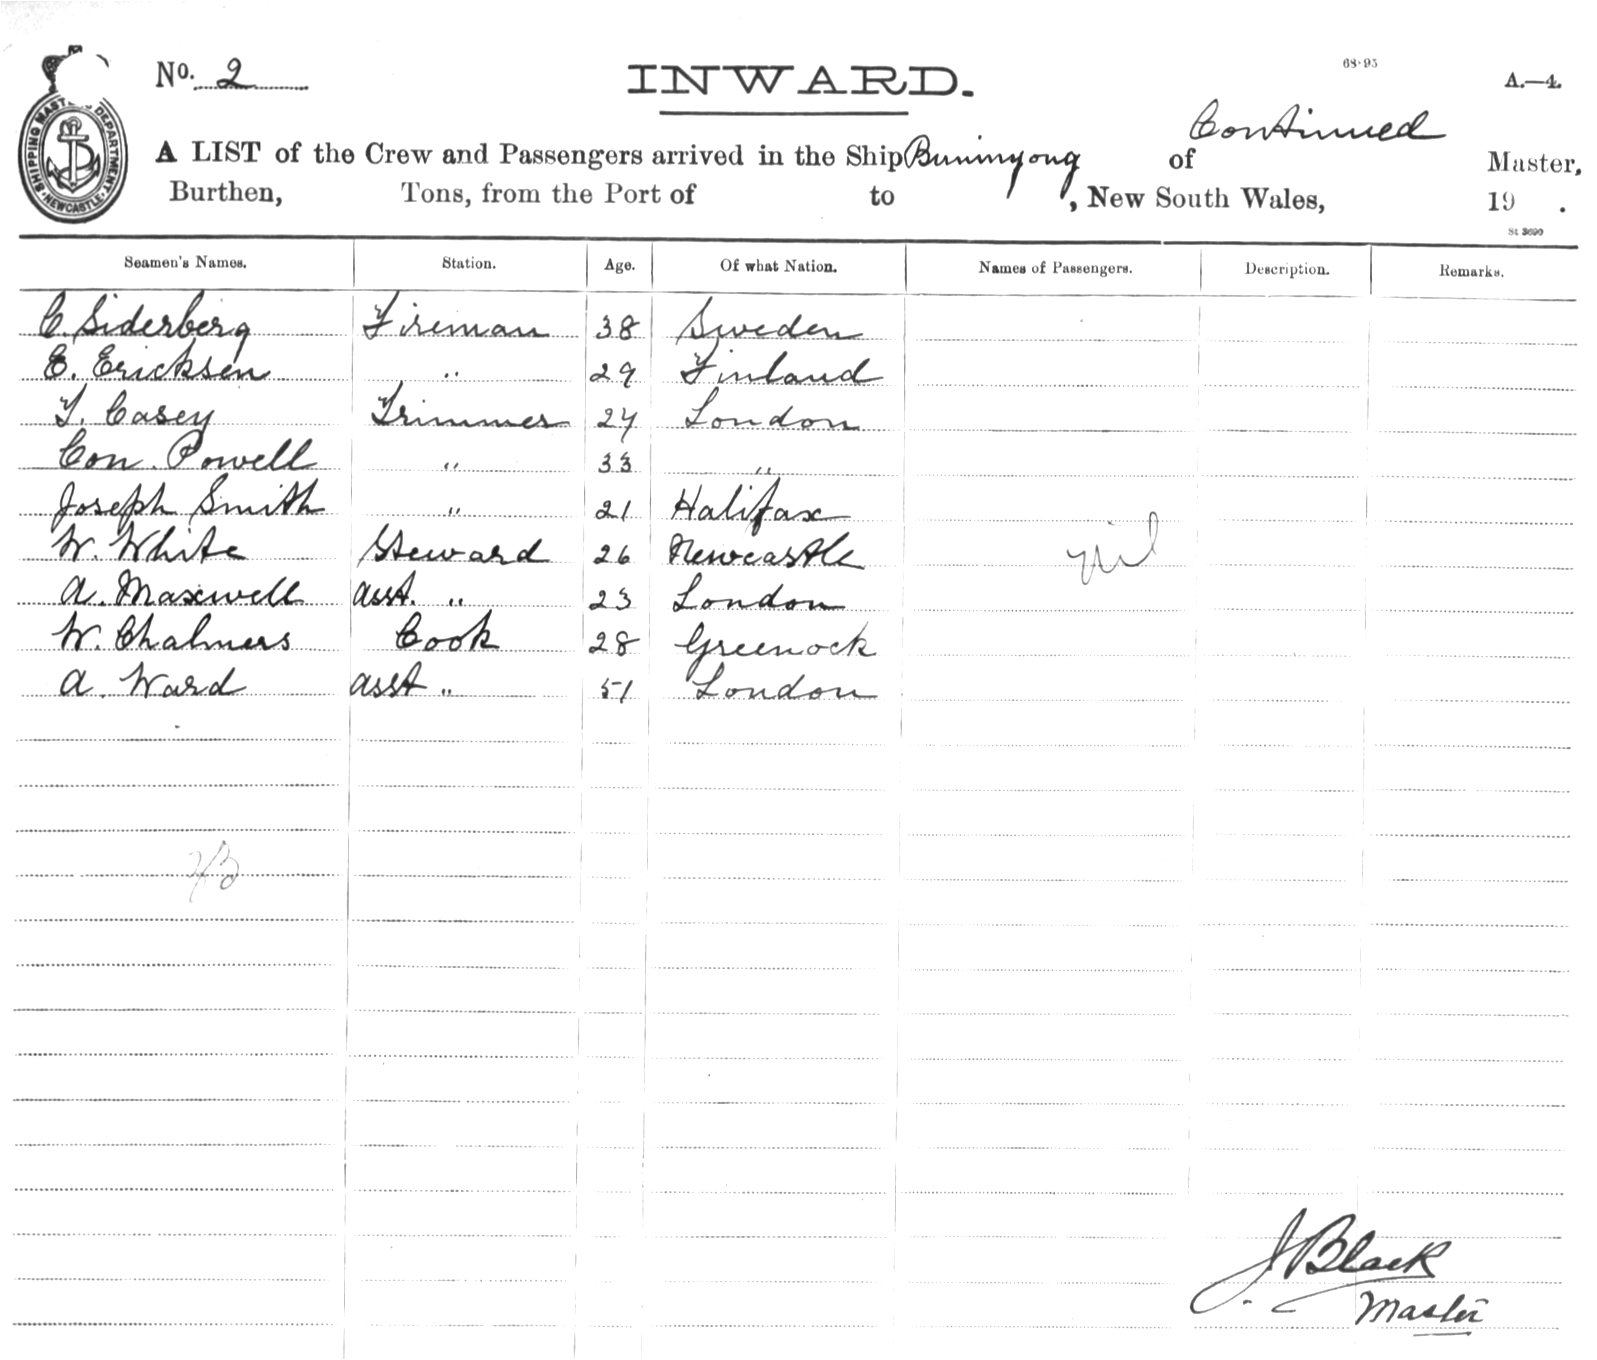 No. 2
INWARD.
68·95
A.—4.
SHIPPING MASTER'S DEPARTMENT NEWCASTLE
Continued
A LIST of the Crew and Passengers arrived in the Ship Buninyong of Master,
Burthen, Tons, from the Port of to , New South Wales, 19 .
St 3690
Seamen's Names. Station. Age. Of what Nation. Names of Passengers. Description. Remarks.
C. Siderberg Fireman 38 Sweden
E. Ericksen " 29 Finland
T. Casey Trimmer 24 London
Con. Powell " 33 "
Joseph Smith " 21 Halifax
W. White Steward 26 Newcastle nil
A. Maxwell asst. " 23 London
W. Chalmers Cook 28 Greenock
A. Ward asst " 51 London
J. Black
Master